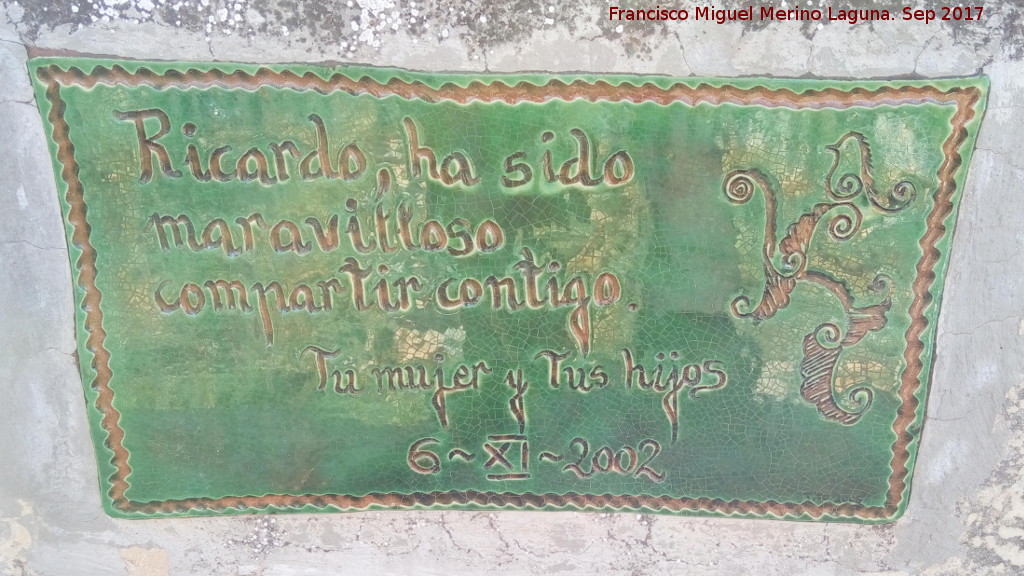 Francisco Miguel Merino Laguna. Sep 2017
Ricardo, ha sido
maravilloso
compartir contigo.
Tu mujer y Tus hijos
6~XI~2002